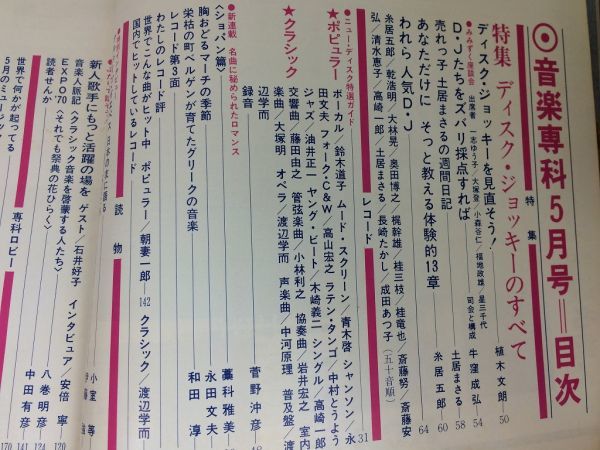 ◎音楽専科5月号＝目次
特集
特集 ディスク・ジョッキーのすべて
ディスク・ジョッキーを見直そう! 植木文朗 50
●みみずく座談会 出席者 一志ゆう子/大塚登/小森谷仁/福地政雄/星三千代
D・Jたちをズバリ採点すれば 司会と構成 牛窪成弘 54
売れっ子 土居まさるの週間日記 土居まさる 58
あなただけに そっと教える体験的13章 糸居五郎 60
われら人気D・J 64
糸居五郎/乾浩明/大林晃/奥田博之/梶幹雄/桂三枝/桂竜也/斎藤努/斎藤安
弘/清水恵子/高崎一郎/土居まさる/長崎たかし/成田あつ子(五十音順)
レコード
●ニュー・ディスク特選ガイド 31
★ポピュラー
ボーカル/鈴木道子 ムード・スクリーン/青木啓 シャンソン/永
田文夫 フォーク・C&W/高山宏之 ラテン・タンゴ/中村とうよう
ジャズ/油井正一 ヤング・ビート/木崎義二 シングル/高崎一郎
★クラシック
交響曲/藤田由之 管弦楽曲/小林利之 協奏曲/岩井宏之 室内
楽曲/大塚明 オペラ/渡辺学而 声楽曲/中河原理 普及盤/渡
辺学而
録音 菅野沖彦
●新連載 名曲に秘められたロマンス
〈ショパン篇〉 藁科雅美
胸おどるマーチの季節 永田文夫
栄枯の町ベルゲンが育てたグリークの音楽 和田淳
レコード第3面
わたしのレコード評
世界でこんな曲がヒット中 ポピュラー/朝妻一郎 142 クラシック/渡辺学而
国内でヒットしているレコード
読物
新人歌手にもっと活躍の場を ゲスト/石井好子 インタビュア/安倍寧
音楽人脈記〈クラシック音楽を啓蒙する人たち〉 八巻明彦 124
EXPO'70〈それでも祭典の花ひらく〉 中田有彦 141
読者せんか
専科ロビー
世界で何かが起ってる
5月のミュージッ
170